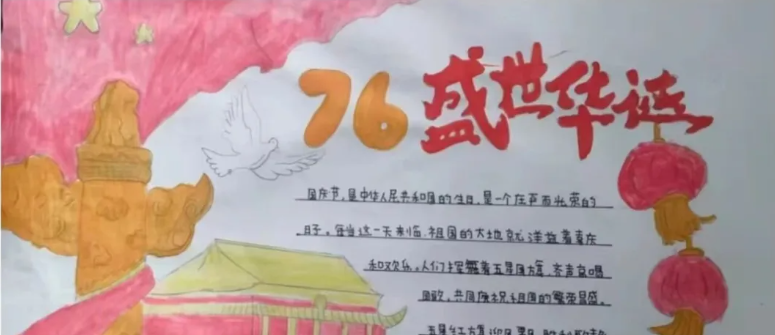 76 盛世华诞
国庆节，是中华人民共和国的生日，是一个庄严而光荣的
日子。每当这一天来临，祖国的大地就洋溢着喜庆
和欢乐。人们挥舞着五星红旗，齐声高唱
国歌，共同庆祝祖国的繁荣昌盛。
五星红旗迎风飘